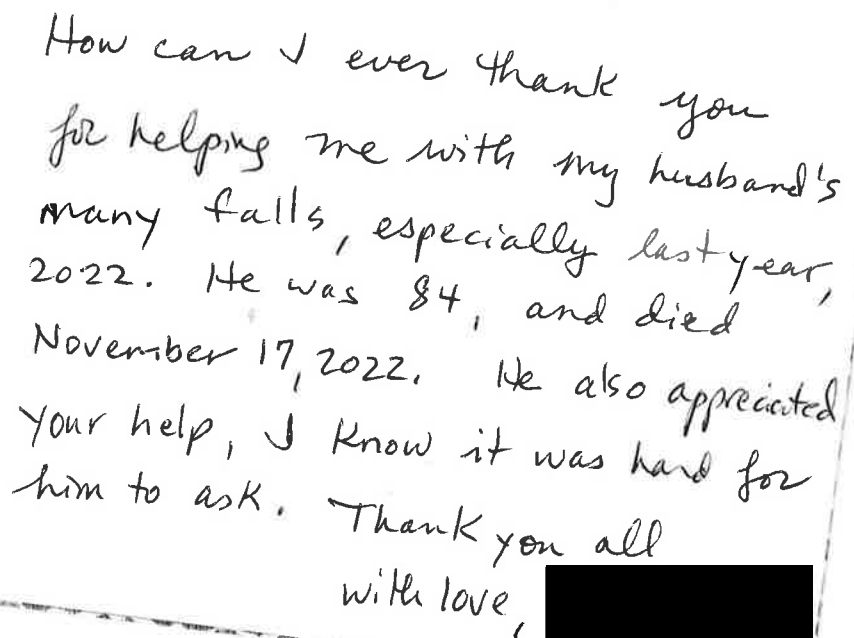 How can I ever thank you
for helping me with my husband's
many falls, especially last year,
2022. He was 84, and died
November 17, 2022. He also appreciated
your help, I know it was hard for
him to ask. Thank you all
with love,